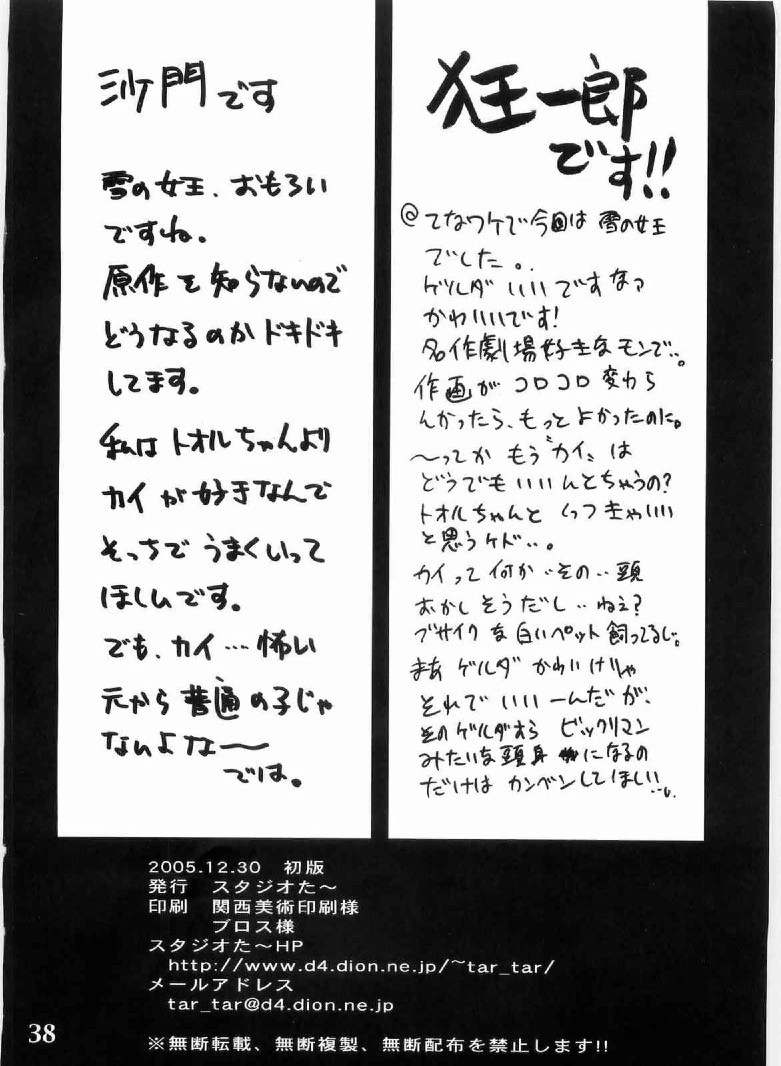 狂一郎
です!!
@てなワケで今回は雪の女王
でした。.
ゲルダ いいですなァ
かわいいです!
名作劇場好きなモンで…。
作画がコロコロ変わら
んかったら、もっとよかったのに。
〜ってか もう〝カイ〟は
どうでもいいんとちゃうの?
トオルちゃんと くっつきゃいい
と思うケド…。
カイって何か…その…頭
おかしそうだし…ねぇ?
ブサイクな白いペット飼ってるし。
まあ ゲルダ かわいけりゃ
それでいいーんだが、
そのゲルダすら ビックリマン
みたいな頭身 になるの
だけは カンベンしてほしい…。
沙門です
雪の女王、おもろい
ですね。
原作を知らないので
どうなるのかドキドキ
してます。
私はトオルちゃんより
カイが好きなんで
そっちでうまくいって
ほしいです。
でも、カイ…怖い
元から普通の子じゃ
ないよな〜
では。
2005.12.30 初版
発行 スタジオた〜
印刷 関西美術印刷様
プロス様
スタジオた〜HP
http://www.d4.dion.ne.jp/~tar_tar/
メールアドレス
tar_tar@d4.dion.ne.jp
38
※無断転載、無断複製、無断配布を禁止します!!